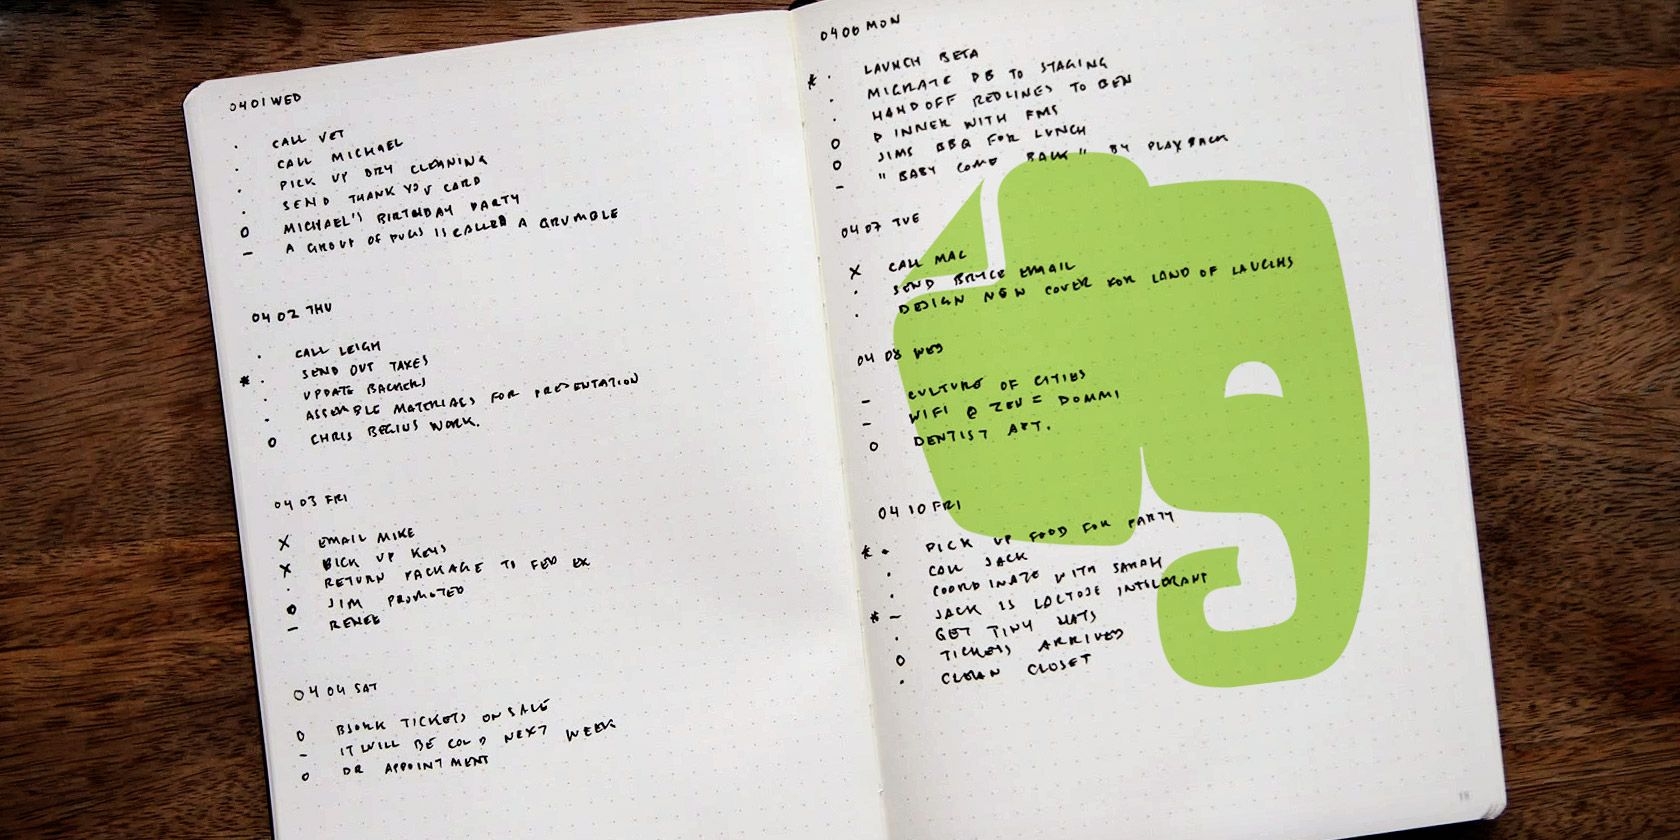 0401 WED
. CALL VET
. CALL MICHAEL
. PICK UP DRY CLEANING
. SEND THANK YOU CARD
O MICHAEL'S BIRTHDAY PARTY
– A GROUP OF PUGS IS CALLED A GRUMBLE
04 02 THU
. CALL LEIGH
* . SEND OUT TAXES
. UPDATE BACKERS
. ASSEMBLE MATERIALS FOR PRESENTATION
O CHRIS BEGINS WORK.
04 03 FRI
X EMAIL MIKE
X PICK UP KEYS
. RETURN PACKAGE TO FED EX
O JIM PROMOTED
– RENEE
04 04 SAT
O BJORK TICKETS ON SALE
– IT WILL BE COLD NEXT WEEK
O DR APPOINTMENT
0406 MON
* . LAUNCH BETA
. MIGRATE DB TO STAGING
. HAND OFF REDLINES TO BEN
O DINNER WITH FMS
O JIMS BBQ FOR LUNCH
– "BABY COME BACK" BY PLAYBACK
04 07 TUE
X CALL MAC
. SEND BRYCE EMAIL
. DESIGN NEW COVER FOR LAND OF LAUGHS
04 08 WED
– CULTURE OF CITIES
– WIFI @ ZEN = DOMMI
O DENTIST APT.
04 10 FRI
* . PICK UP FOOD FOR PARTY
. CALL JACK
. COORDINATE WITH SARAH
* – JACK IS LACTOSE INTILERANT
. GET TINY HATS
O TICKETS ARRIVED
. CLEAN CLOSET
18